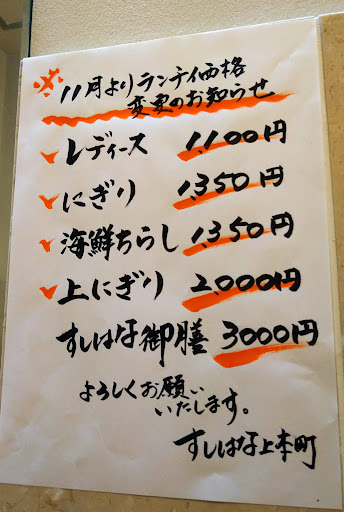 ※11月よりランチ価格
変更のお知らせ
レディース 1,100円
にぎり 1,350円
海鮮ちらし 1,350円
上にぎり 2,000円
すしはな御膳 3000円
よろしくお願い
いたします。
すしはな上本町